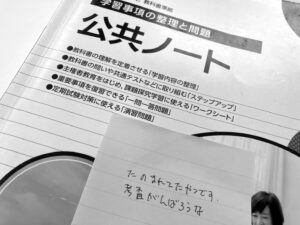 教科書準拠
学習事項の整理と問題
公共ノート
●教科書の理解を定着させる「学習内容の整理」
●教科書の問いや共通テストなどに取り組む「ステップアップ」
●主権者教育をはじめ、課題探究学習に使える「ワークシート」
●重要事項を復習できる「一問一答問題」
●定期試験対策に使える「演習問題」
たのまれてたやつです。
考査がんばろうな